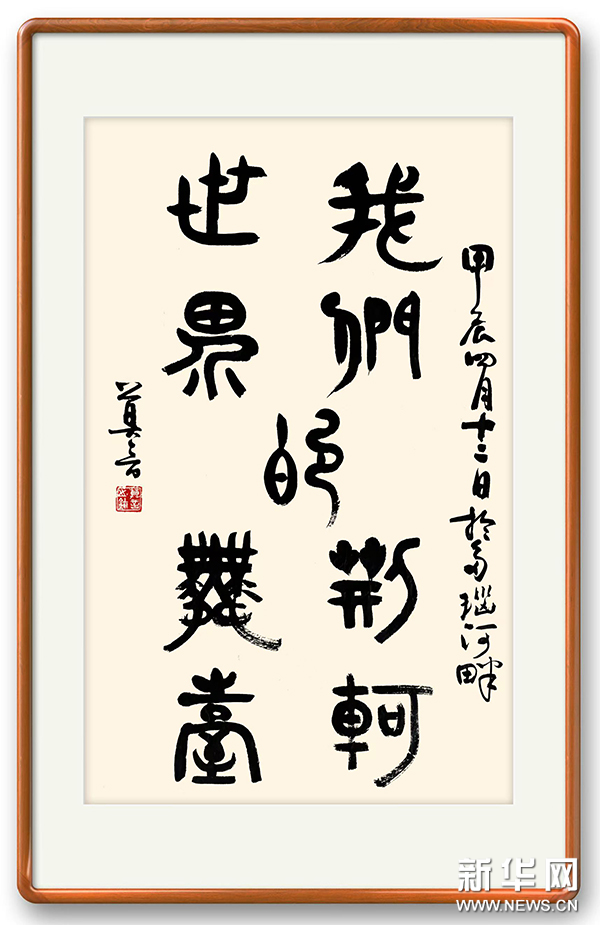 甲辰四月十二日於多瑙河畔
我們
的
荊軻
世界
舞臺
莫言
新华网
WWW.NEWS.CN